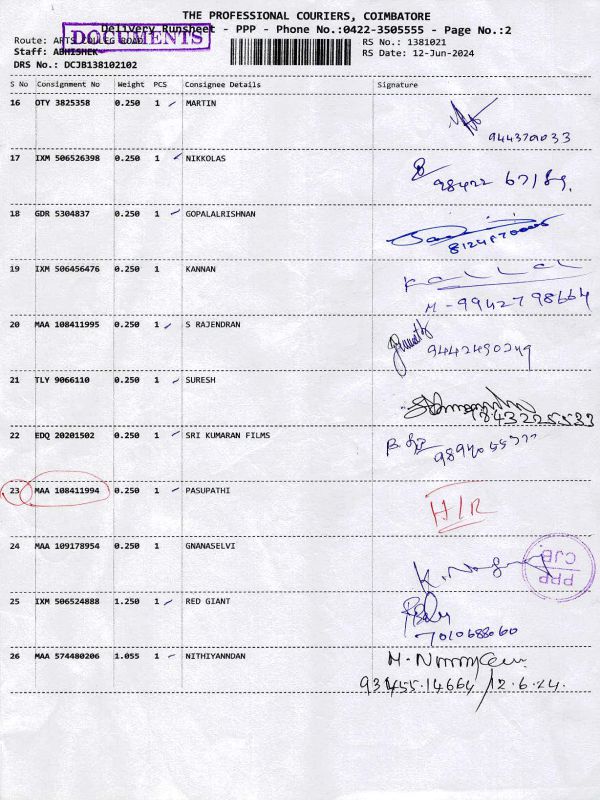 THE PROFESSIONAL COURIERS, COIMBATORE
Delivery Runsheet - PPP - Phone No.:0422-3505555 - Page No.:2
DOCUMENTS
Route: ARTS COLLEG ROAD
RS No.: 1381021
Staff: ABHISHEK
RS Date: 12-Jun-2024
DRS No.: DCJB138102102
S No Consignment No Weight PCS Consignee Details Signature
16 OTY 3825358 0.250 1 MARTIN
17 IXM 506526398 0.250 1 NIKKOLAS
18 GDR 5304837 0.250 1 GOPALALRISHNAN
19 IXM 506456476 0.250 1 KANNAN
M - 9942798664
20 MAA 108411995 0.250 1 S RAJENDRAN
9442490249
21 TLY 9066110 0.250 1 SURESH
22 EDQ 20201502 0.250 1 SRI KUMARAN FILMS
23 MAA 108411994 0.250 1 PASUPATHI H/R
24 MAA 109178954 0.250 1 GNANASELVI
PPP
CJB
25 IXM 506524888 1.250 1 RED GIANT
7010688060
26 MAA 574480206 1.055 1 NITHIYANNDAN
93455.14664 /12.6.24.